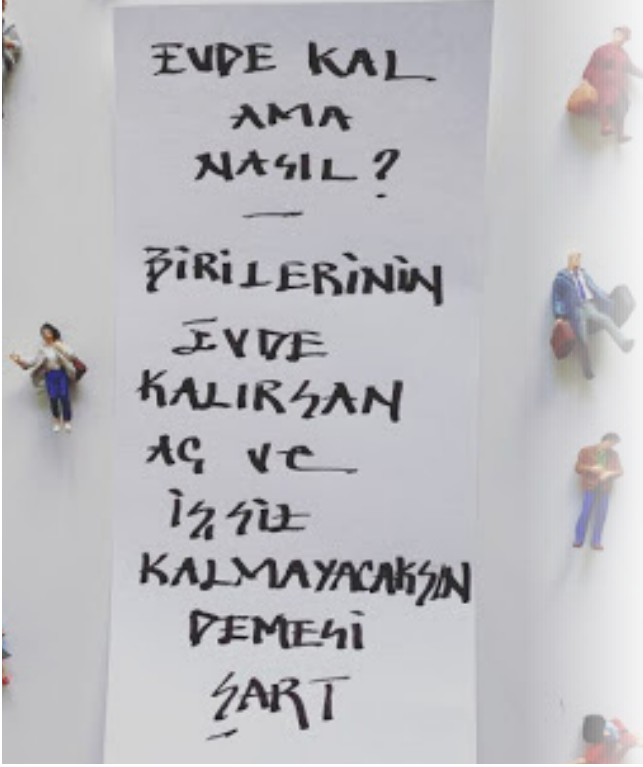 EVDE KAL
AMA
NASIL?
—
BİRİLERİNİN
EVDE
KALIRSAN
AÇ VE
İŞSİZ
KALMAYACAKSIN
DEMESİ
ŞART